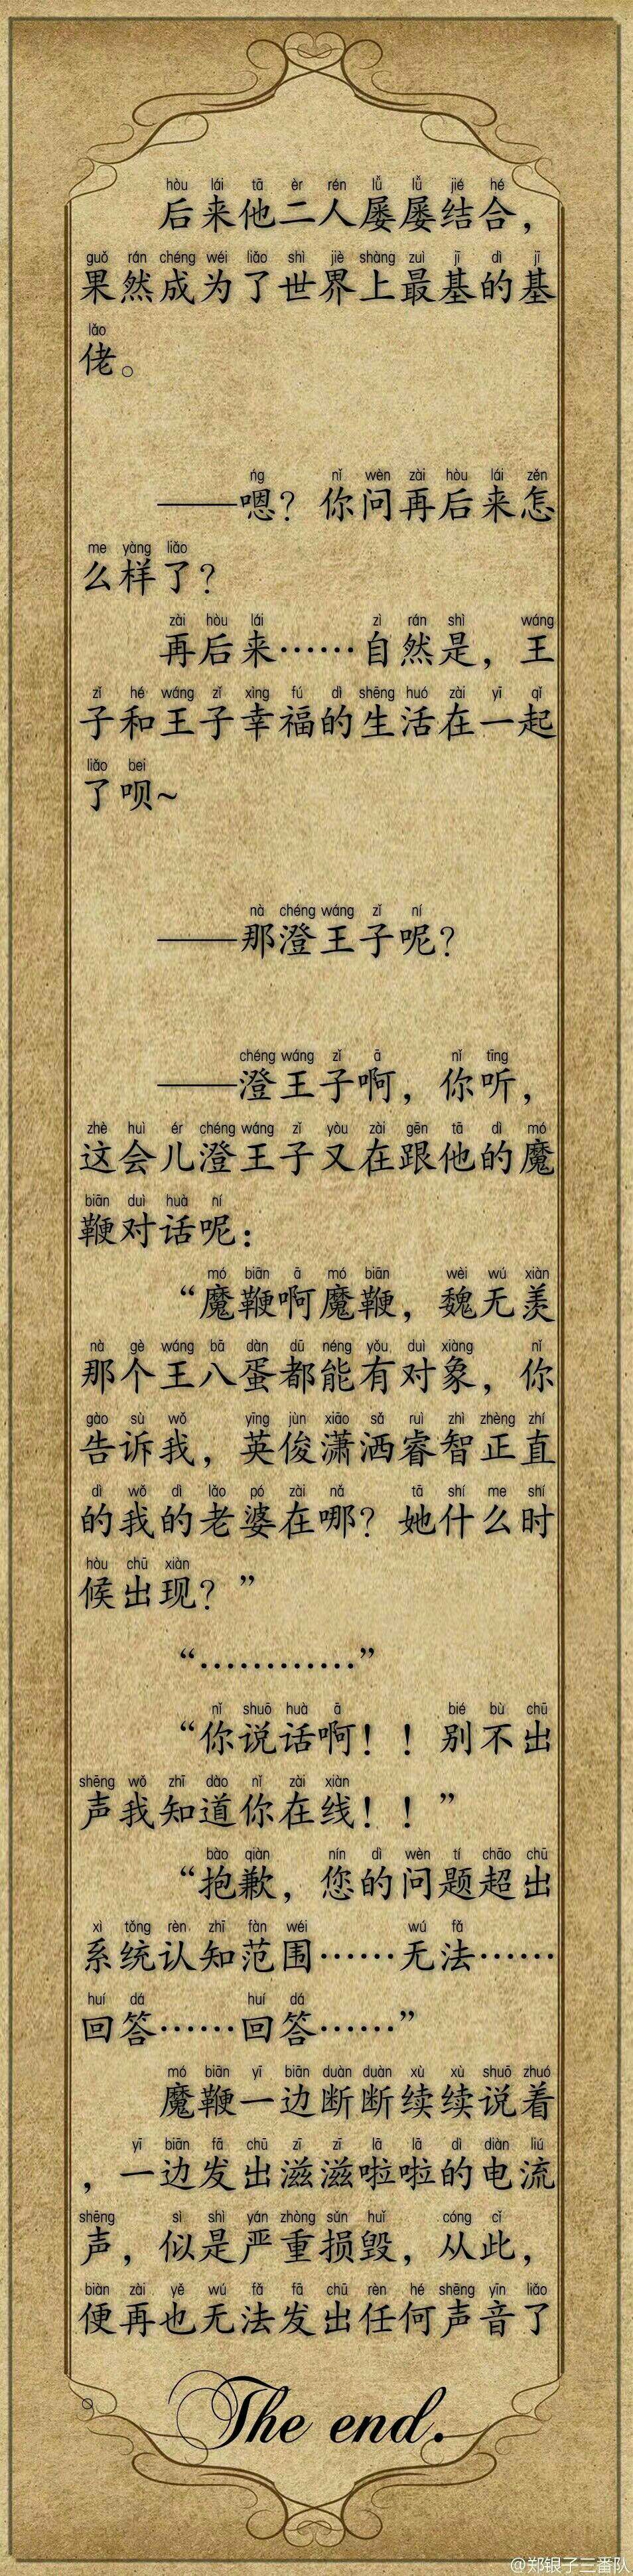 hòu lái tā èr rén lǚ lǚ jié hé
后来他二人屡屡结合，
guǒ rán chéng wéi liǎo shì jiè shàng zuì jī dì jī
果然成为了世界上最基的基
lǎo
佬。
ńg nǐ wèn zài hòu lái zěn
——嗯？你问再后来怎
me yàng liǎo
么样了？
zài hòu lái zì rán shì wáng
再后来……自然是，王
zǐ hé wáng zǐ xìng fú dì shēng huó zài yī qǐ
子和王子幸福的生活在一起
liǎo bei
了呗~
nà chéng wáng zǐ ní
——那澄王子呢？
chéng wáng zǐ ā nǐ tīng
——澄王子啊，你听，
zhè huì ér chéng wáng zǐ yòu zài gēn tā dì mó
这会儿澄王子又在跟他的魔
biān duì huà ní
鞭对话呢：
mó biān ā mó biān wèi wú xiàn
“魔鞭啊魔鞭，魏无羡
nà gè wáng bā dàn dū néng yǒu duì xiàng nǐ
那个王八蛋都能有对象，你
gào sù wǒ yīng jùn xiāo sǎ ruì zhì zhèng zhí
告诉我，英俊潇洒睿智正直
dì wǒ dì lǎo pó zài nǎ tā shí me shí
的我的老婆在哪？她什么时
hòu chū xiàn
候出现？”
“…………”
nǐ shuō huà ā bié bù chū
“你说话啊！！别不出
shēng wǒ zhī dào nǐ zài xiàn
声我知道你在线！！”
bào qiàn nín dì wèn tí chāo chū
“抱歉，您的问题超出
xì tǒng rèn zhī fàn wéi wú fǎ
系统认知范围……无法……
huí dá huí dá
回答……回答……”
mó biān yī biān duàn duàn xù xù shuō zhuó
魔鞭一边断断续续说着
yī biān fā chū zī zī lā lā dì diàn liú
，一边发出滋滋啦啦的电流
shēng sì shì yán zhòng sǔn huǐ cóng cǐ
声，似是严重损毁，从此，
biàn zài yě wú fǎ fā chū rèn hé shēng yīn liǎo
便再也无法发出任何声音了
The end.
@郑银子三番队